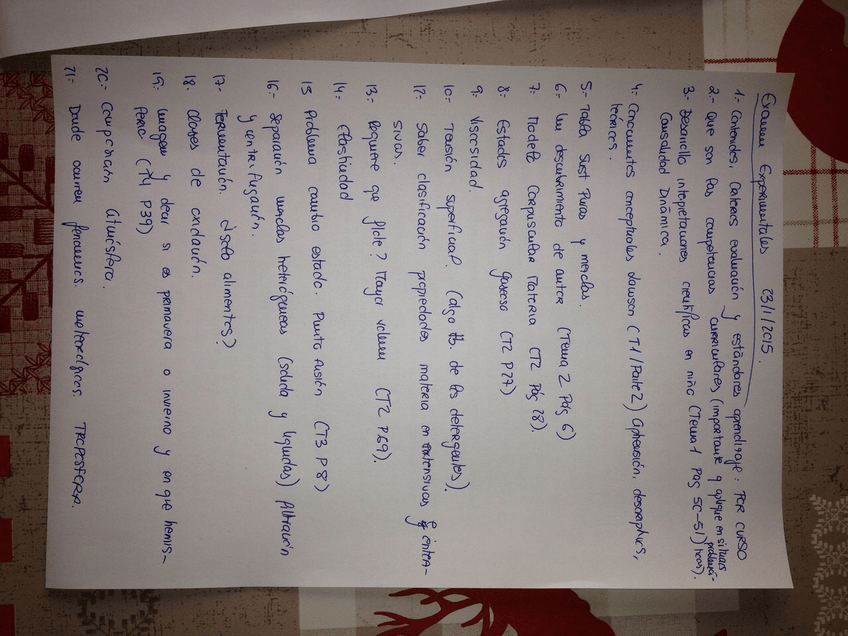 Examen Experimentales 23/1/2015.
1.- Contenidos, Criterios evaluación y estándares aprendizaje: POR CURSO
2.- Que son las competencias curriculares (importante q aplique en situas
problemá-
ticas).
3.- Desarrollo interpretaciones científicas en niño (Tema 1 Pág 50-51)
Causalidad Dinámica.
4.- Conocimientos conceptuales Lawson (T1/Parte 2) aprensión, descriptivos,
teóricos.
5.- Tabla Sust Puras y mezclas.
6.- Un descubrimiento de autor (Tema 2 Pág 6)
7.- Modelo Corpuscular Materia (T2 Pág 28).
8.- Estados agregación gaseoso (T2 P27)
9.- Viscosidad
10.- Tensión superficial. (algo de los detergentes).
12.- Saber clasificación propiedades materia en extensivas y inten-
sivas.
13.- Requiere que flote? Mayor volumen (T2 P69).
14.- Elasticidad
15 Problema cambio estado. Punto fusión (T3 P8)
16.- Separación mezclas heterogéneas (solida y liquidas) filtración
y centrifugación.
17.- Fermentación. ¿solo alimentos?
18.- Clases de oxidación.
19.- Imagen y decir si es primavera o invierno y en que hemis-
ferio (T4 P39)
20.- Composición atmósfera.
21.- Donde ocurren fenomenos meteorológicos TROPOSFERA.